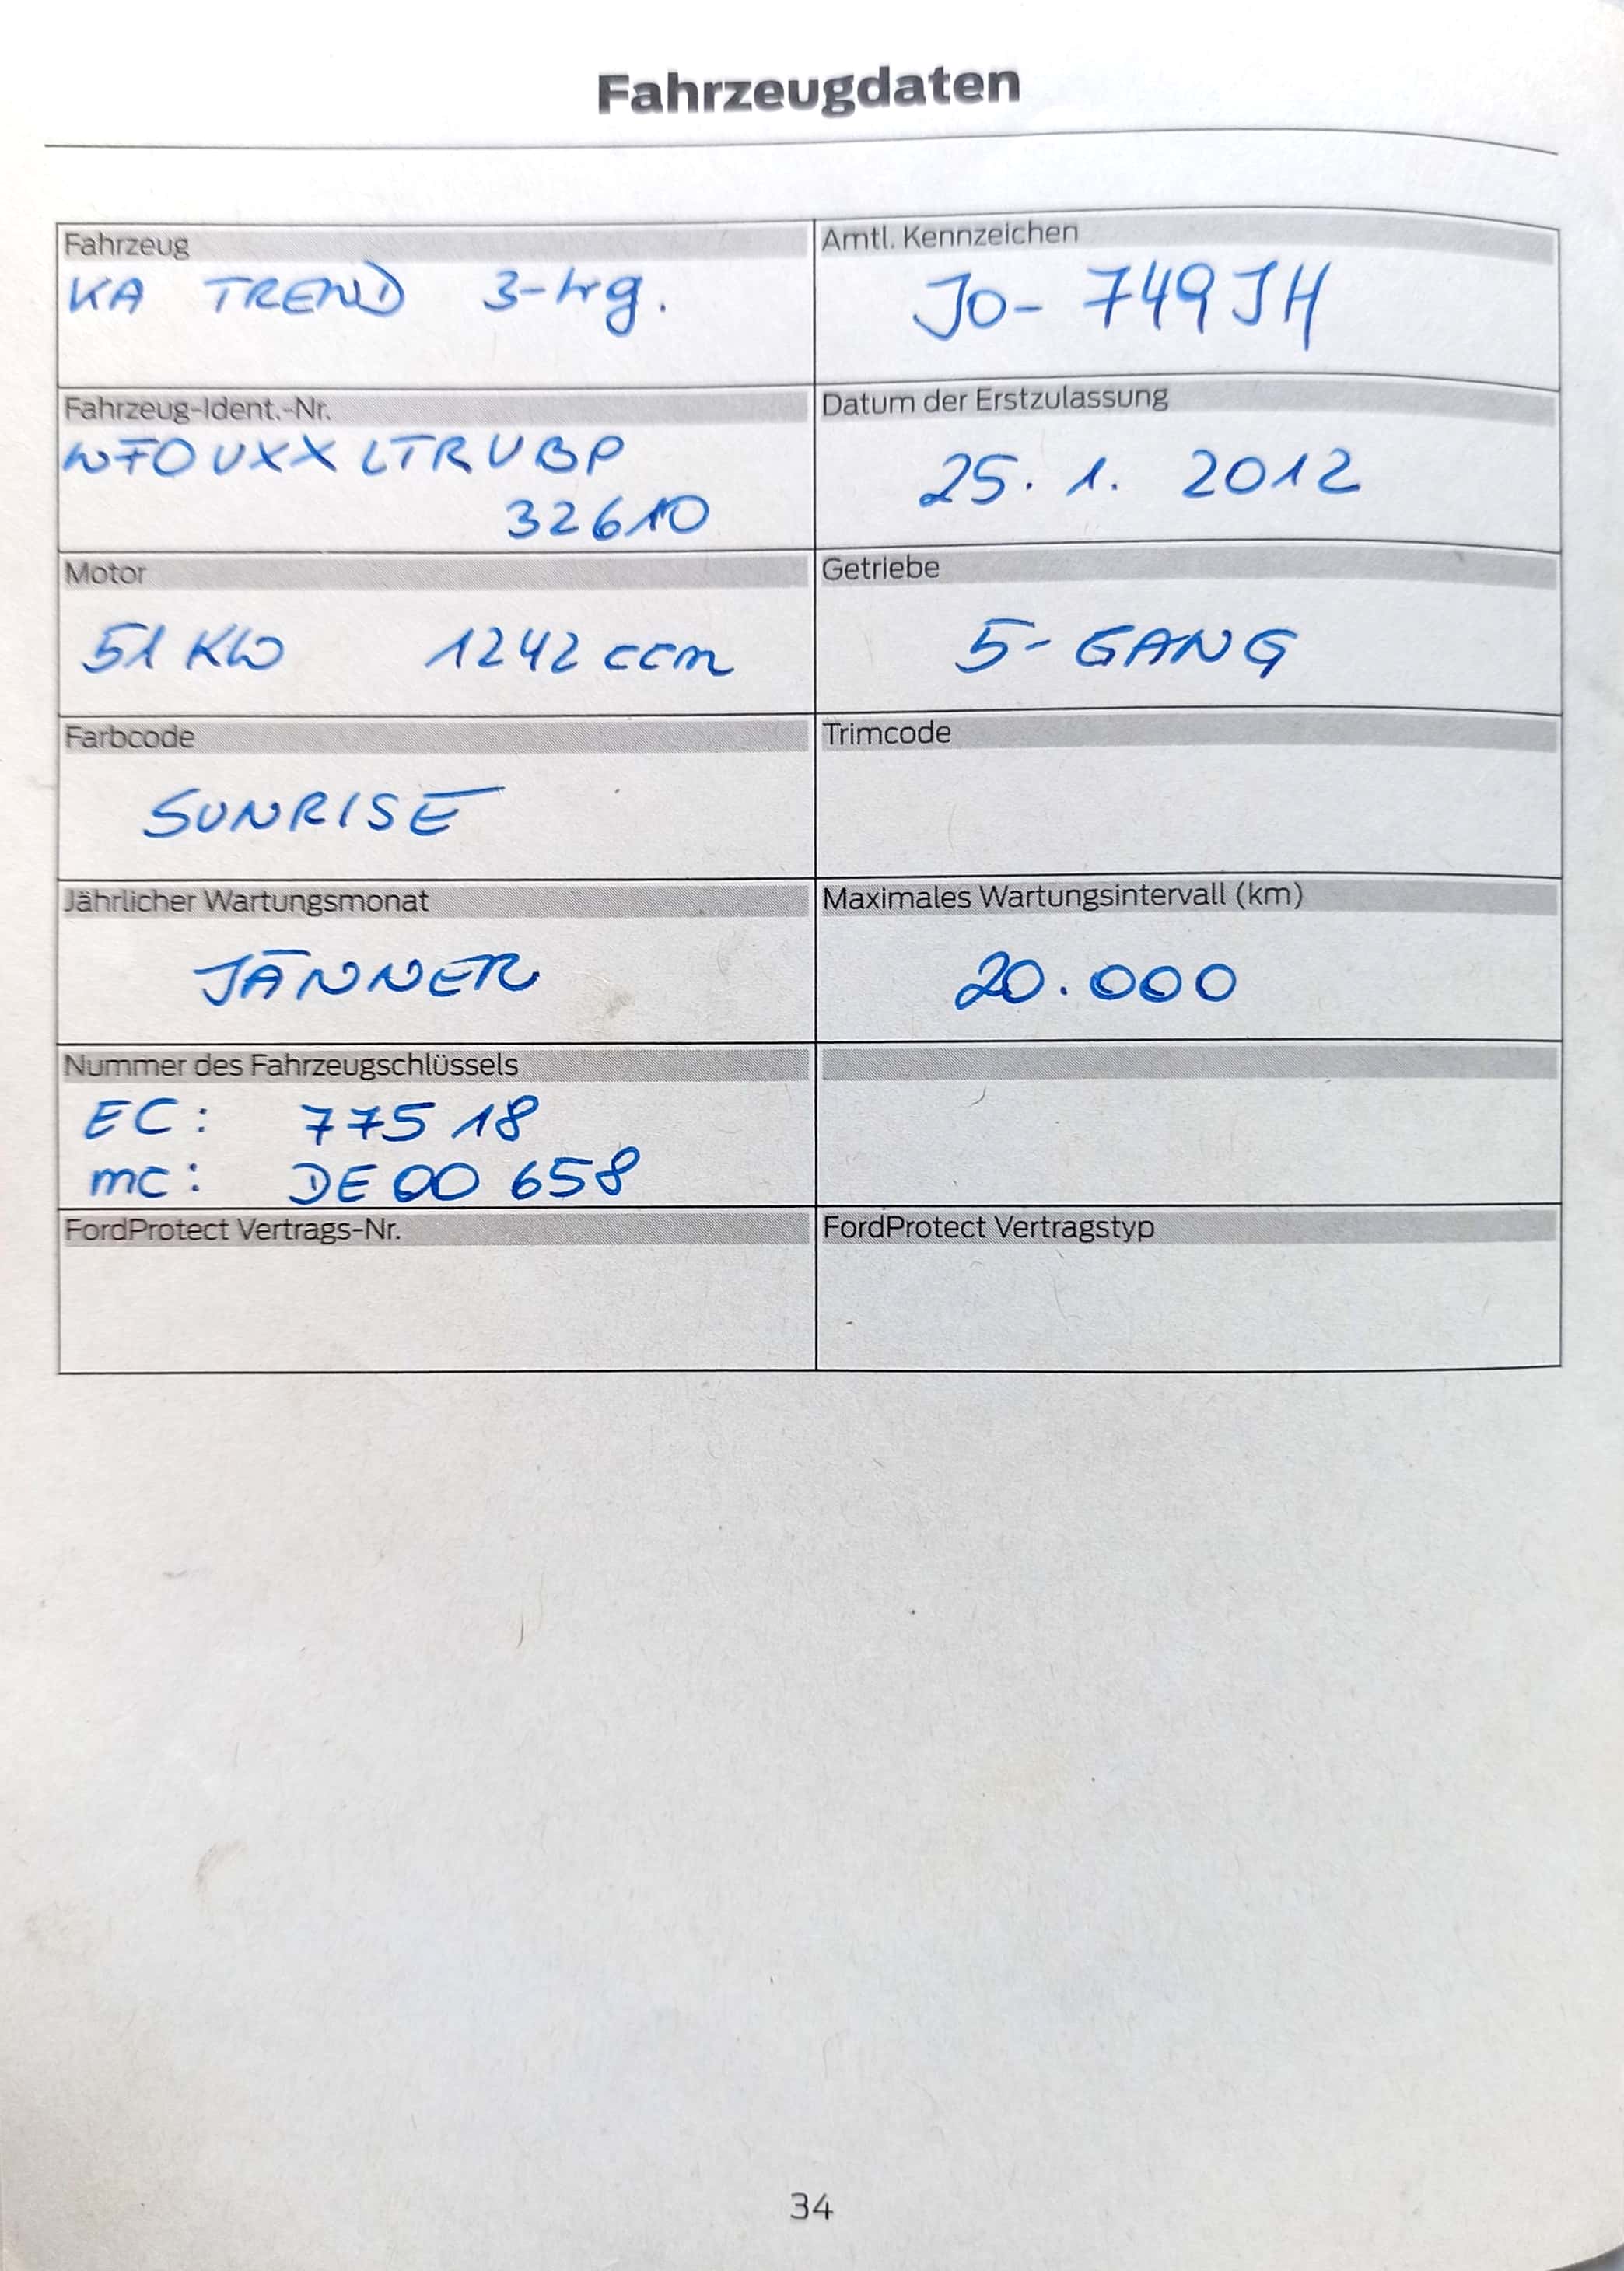 Fahrzeugdaten
Fahrzeug
KA TREND 3-trg.
Amtl. Kennzeichen
JO- 749 JH
Fahrzeug-Ident.-Nr.
WF0UXXLTRUBP
32610
Datum der Erstzulassung
25. 1. 2012
Motor
51 KW 1242 ccm
Getriebe
5- GANG
Farbcode
SUNRISE
Trimcode
Jährlicher Wartungsmonat
JÄNNER
Maximales Wartungsintervall (km)
20.000
Nummer des Fahrzeugschlüssels
EC: 77518
mc: DE00 658
FordProtect Vertrags-Nr.
FordProtect Vertragstyp
34